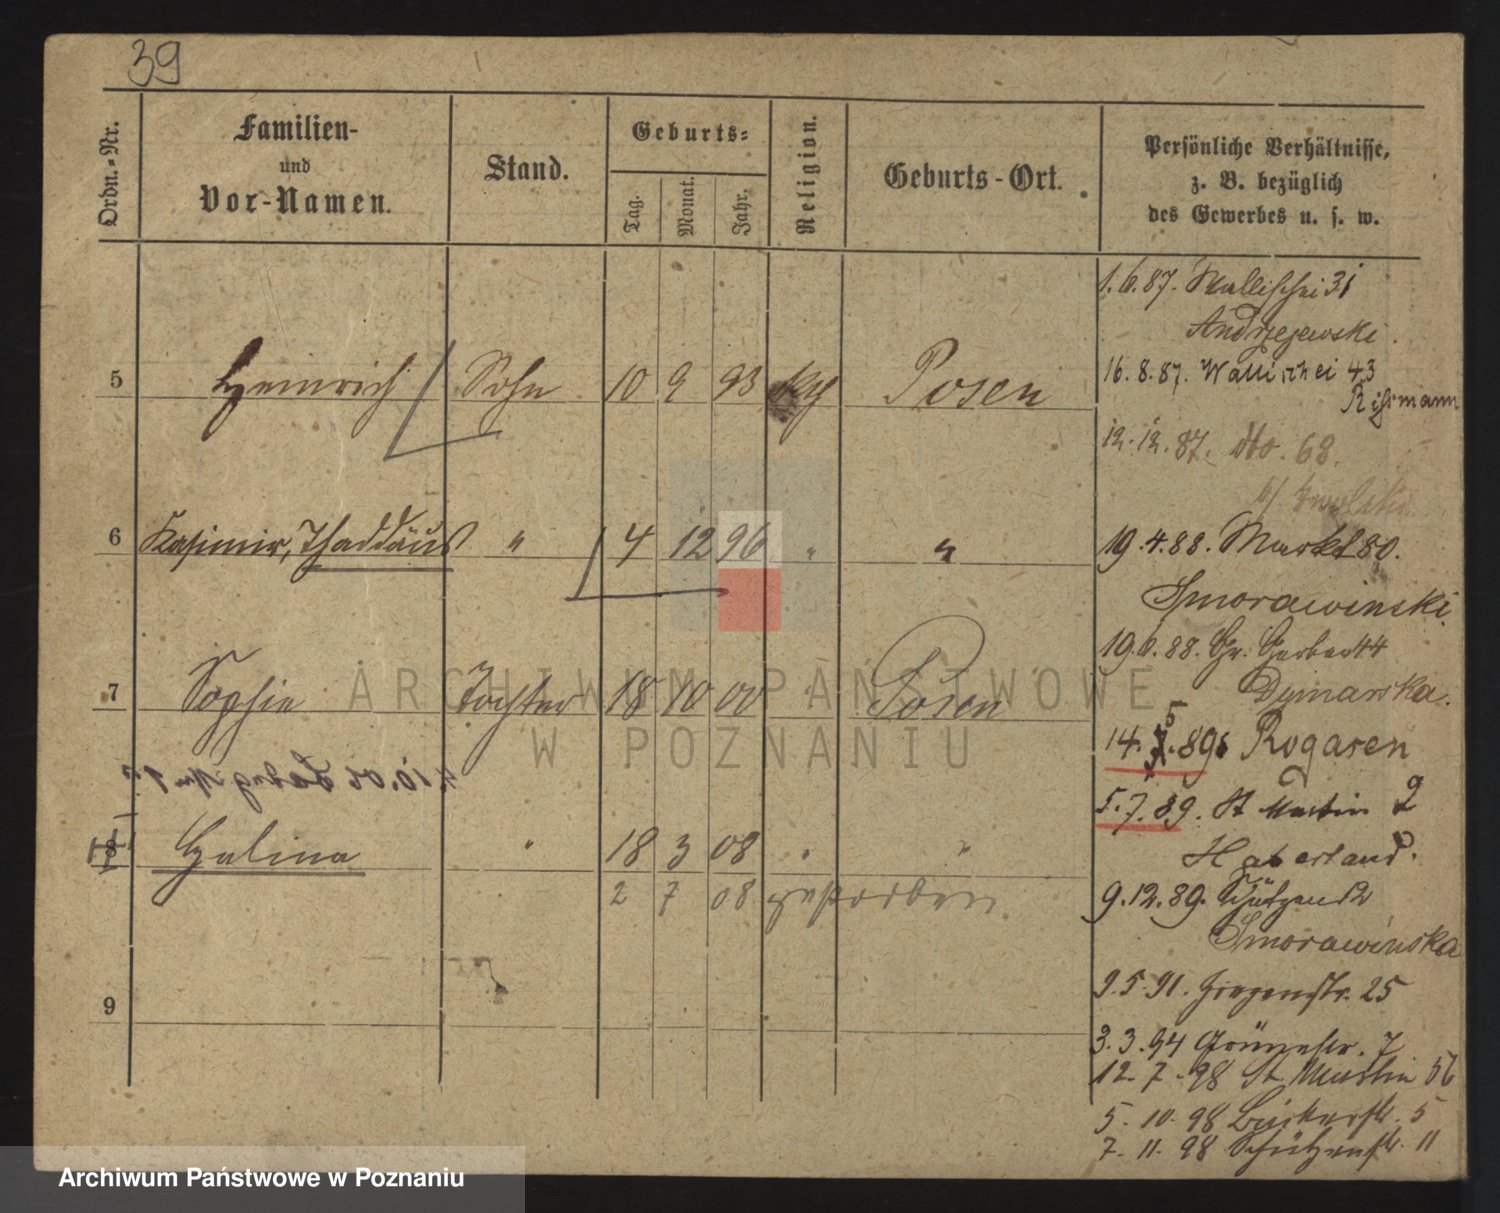 39
Ordn.-Nr.
Familien-
und
Vor-Namen.
Stand.
Geburts-
Tag.
Monat.
Jahr.
Religion.
Geburts-Ort.
Persönliche Verhältnisse,
z. B. bezüglich
des Gewerbes u. s. w.
5 Heinrich Sohn 10 9 93 kth Posen
6 Kasimir, Thaddäus " 4 12 96 " "
7 Sophie Tochter 18 10 00 " Posen
8 Halina " 18 3 08 " "
2 7 08 gestorben
9
1.6.87. Wallischei 31
Andrzejewski.
16.8.87. Wallischei 43
12.12.87. dto. 68.
19.4.88. Markt 80.
Smorawinski.
19.6.88. Gr. Gerber 44
Dymarska.
14.5.89. Rogasen
5.7.89. St Martin 2
Haberland.
9.12.89. Schützen 12
Smorawinska
9.5.91. 25
3.3.94 Grünestr. 7
12.7.98 St Martin 56
5.10.98 Bäckerstr. 5
7.11.98 Schützenstr. 11
ARCHIWUM PAŃSTWOWE
W POZNANIU
Archiwum Państwowe w Poznaniu